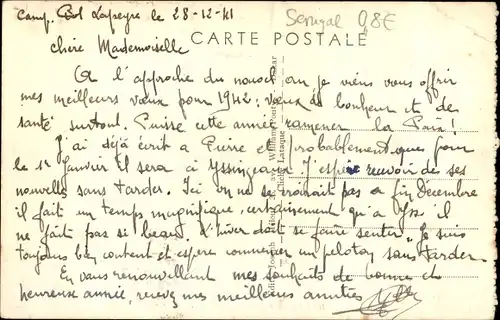 Camp. Bol Lapeyre le 28-12-41
Senegal 0,8€
chère Mademoiselle
CARTE POSTALE
A l'approche du nouvel an je viens vous offrir
mes meilleurs vœux pour 1942 : vœux de bonheur et de
santé surtout. Puisse cette année ramener la Paix !
J'ai déjà écrit a Pierre et probablement que pour
le 1er Janvier il sera a Yssingeaux. J'espère recevoir de ses
nouvelles sans tarder. Ici on ne se croirait pas a fin Decembre
il fait un temps magnifique, certainement qu'a Yss. il
ne fait pas si beau. L'hiver doit se faire sentir. Je suis
toujours bien content et espere commencer un peloton sans tarder
En vous renouvellant mes souhaits de bonne et
heureuse année, recevez mes meilleures amitiés